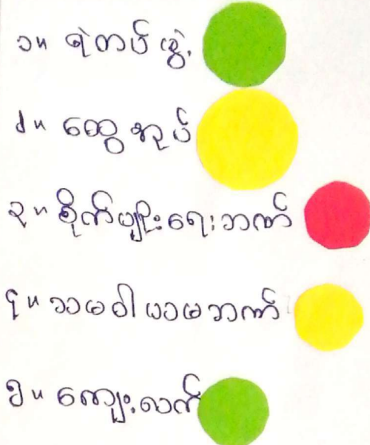 ၁။ ရဲတပ်ဖွဲ့
၂။ ထွေအုပ်
၃။ စိုက်ပျိုးရေးဘဏ်
၄။ သမဝါယမဘဏ်
၅။ ကျေးလက်